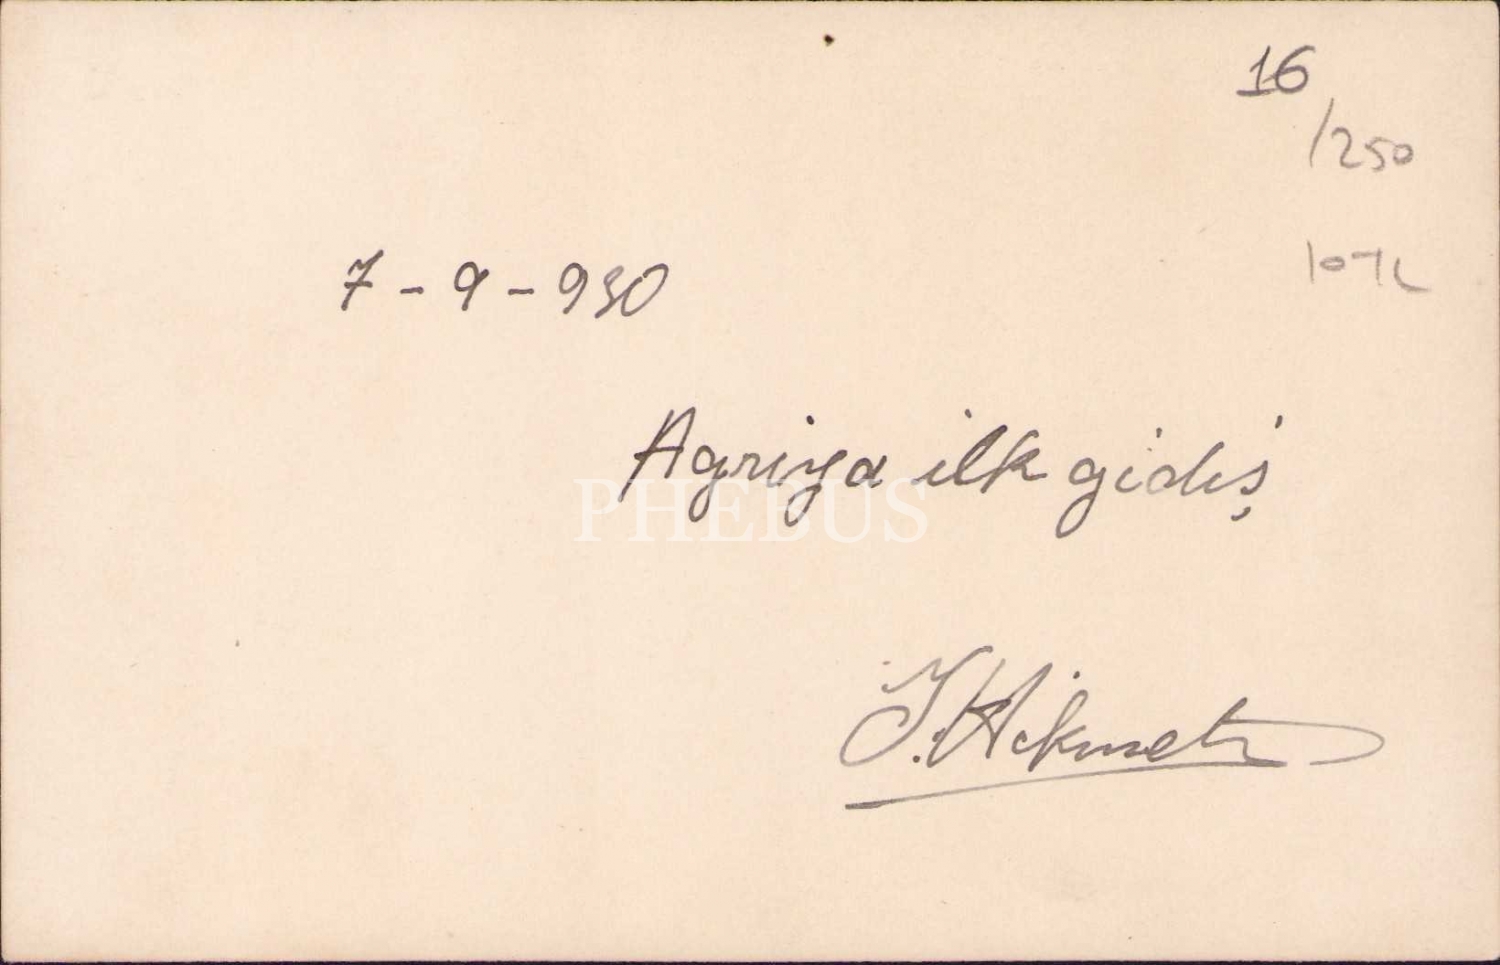 16
/250
10TL
7 - 9 - 930
Agriya ilk gidiş
PHEBUS
İ. Hikmet